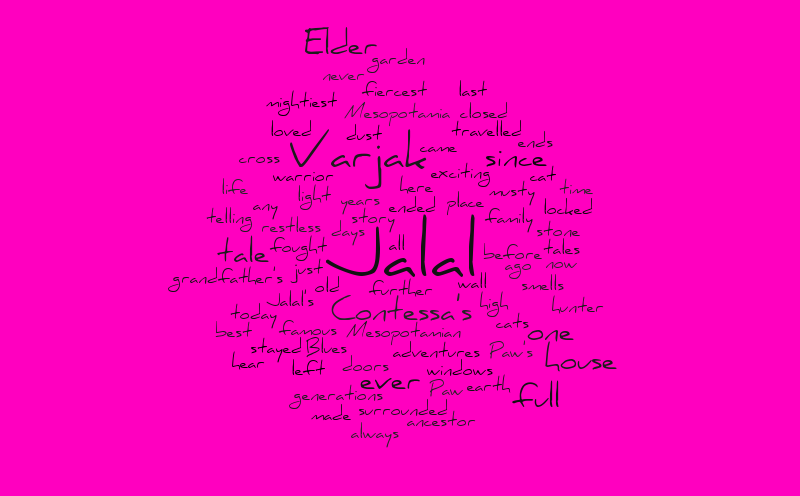 Elder
garden
never
fiercest last
mightiest
Mesopotamia closed
loved dust travelled
Varjak came ends
cross since
warrior exciting cat
life light here musty time
any years ended place
telling story family locked
restless days stone
tale fought all before tales
Jalal
grandfather's just ago now
old further wall smells
Jalal's Contessa's high hunter
today cats
best famous Mesopotamian one
stayed Blues adventures Paw's
hear left doors windows house
ever Paw earth
generations full
made surrounded
ancestor
always